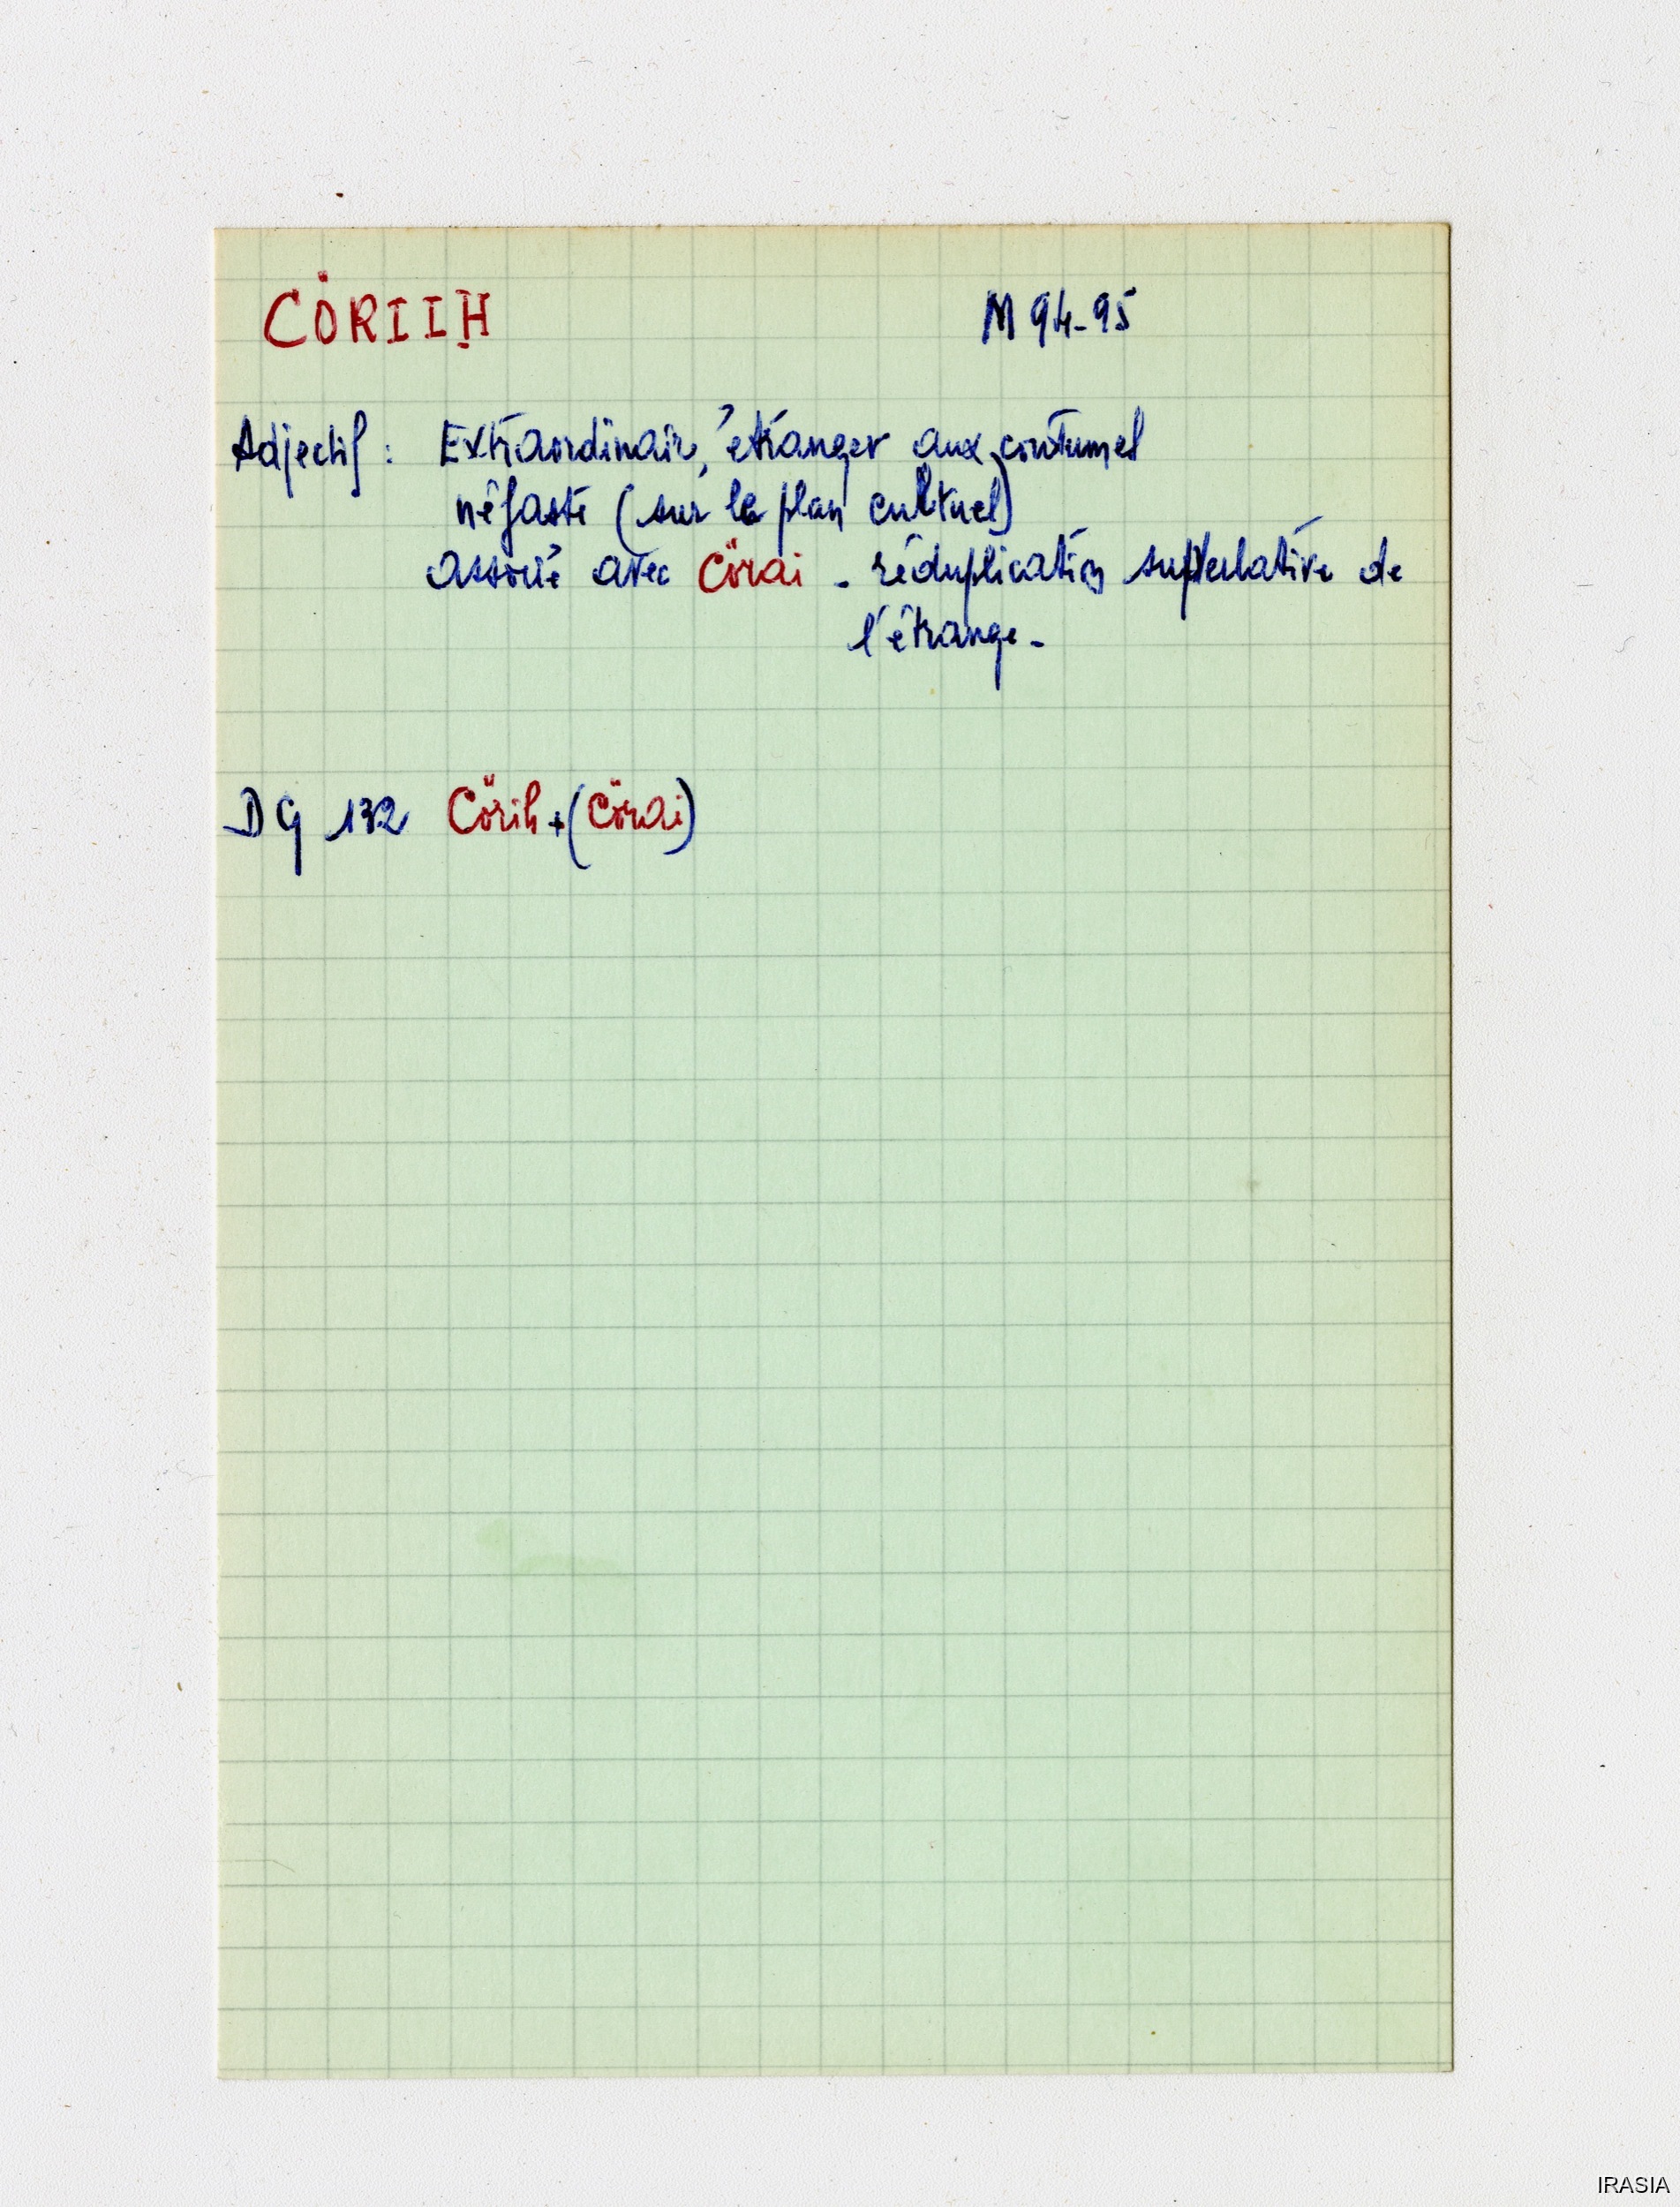 CÖRIIḤ M 94-95
Adjectif : Extraordinaire, étranger aux coutumes
néfaste (sur le plan cultuel)
associé avec Cörai - réduplication superlative de
l'étrange -
DG 132 Cörih + (Cörai)
IRASIA